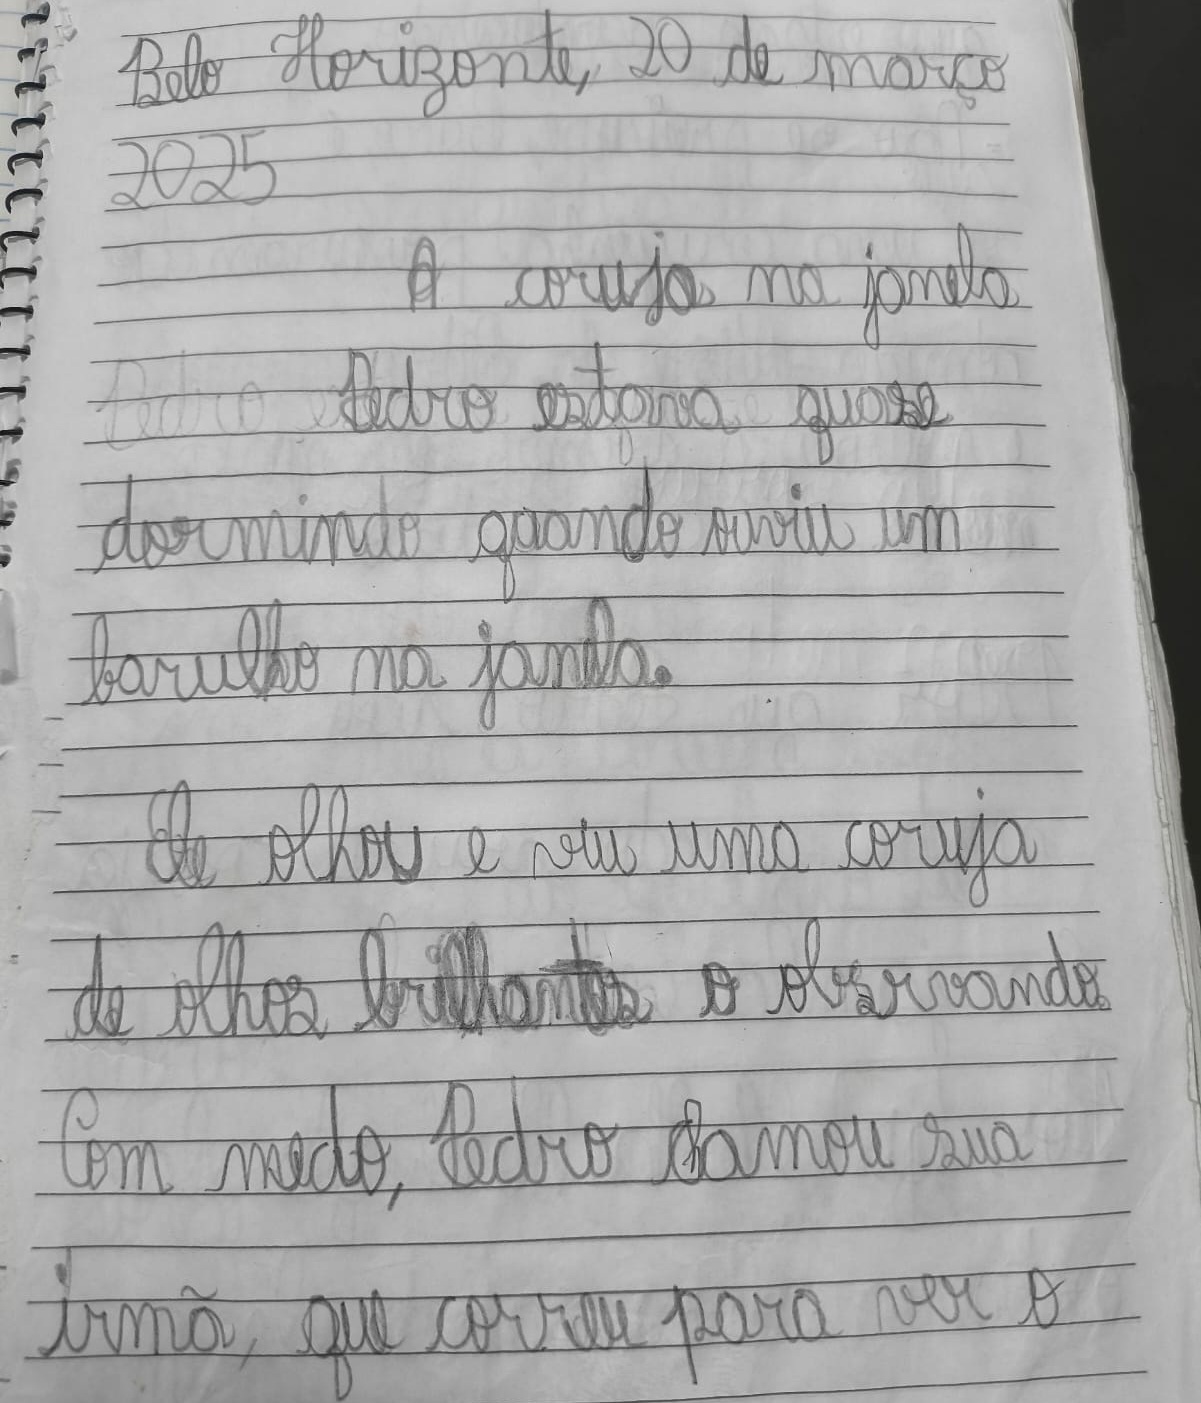 Belo Horizonte, 20 de março
2025
A coruja na janela
Pedro estava quase
dormindo quando ouviu um
barulho na janela.
Ele olhou e viu uma coruja
de olhos brilhantes o observando
Com medo, Pedro chamou sua
irmã, que correu para ver o